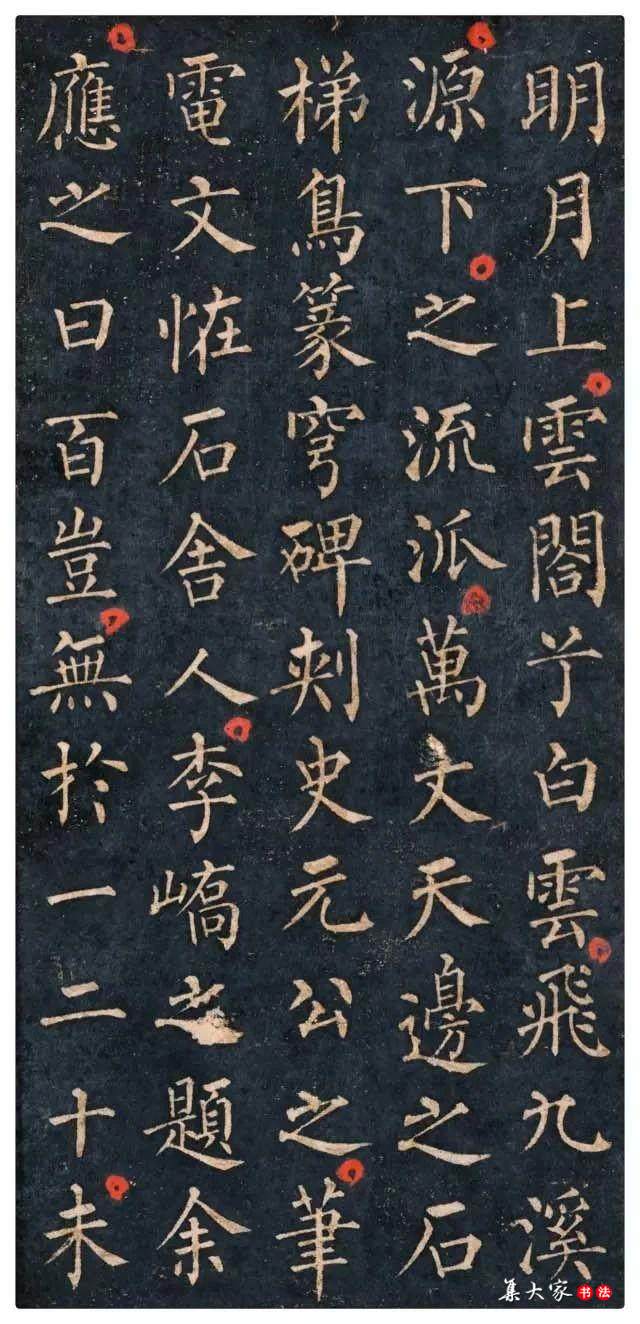 明月上雲閣白雲飛九溪
源下之流派萬文天邊之石
梯鳥篆穹碑刺史元公之筆
電文恠石舍人李嶠之題余
應之曰百豈無於一二十未
集大家书法